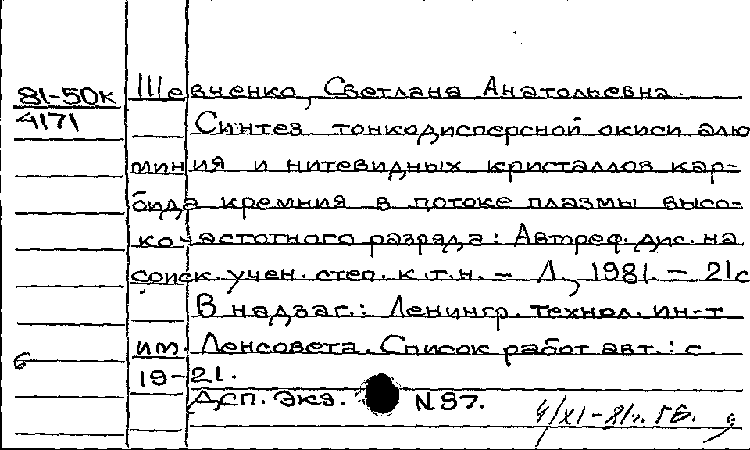 81-50к Шевченко, Светлана Анатольевна.
4171 Синтез тонкодисперсной окиси алю
миния и нитевидных кристаллов кар-
бида кремния в потоке плазмы высо-
кочастотного разряда: Автореф. дис. на
соиск. учен. степ. к.т.н. - Л., 1981. - 21с
В надзаг.: Ленингр. технол. ин-т
им. Ленсовета. Список работ авт.: с.
19-21.
Дсп. Экз. N 87.